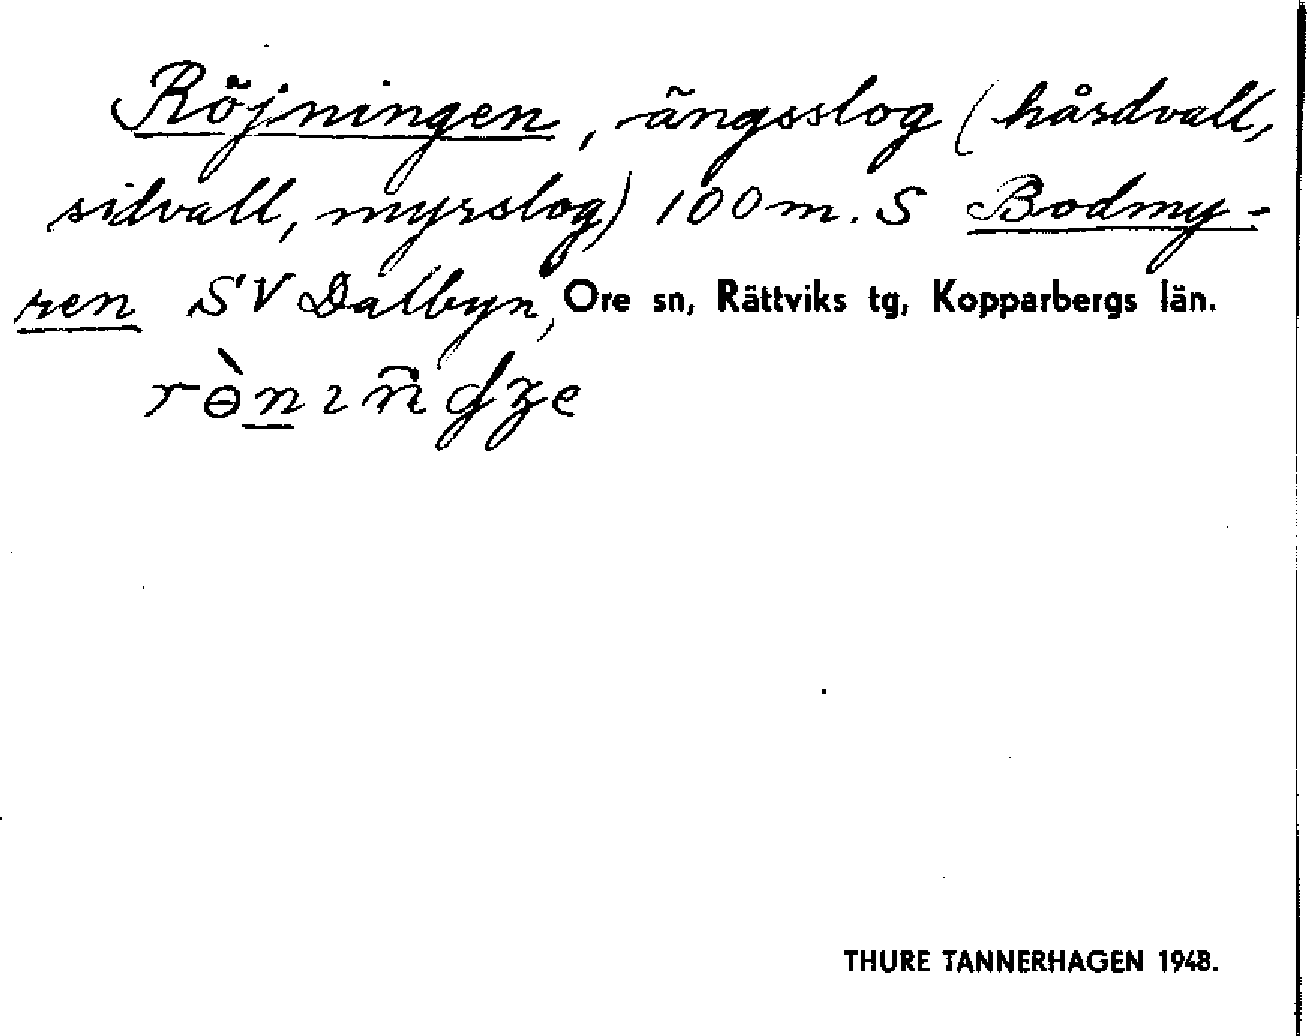 Röjningen, ängsslog (hårdvall,
sidvall, myrslog) 100 m. S Bodmy-
ren SV Dalbyn, Ore sn, Rättviks tg, Kopparbergs län.
THURE TANNERHAGEN 1948.